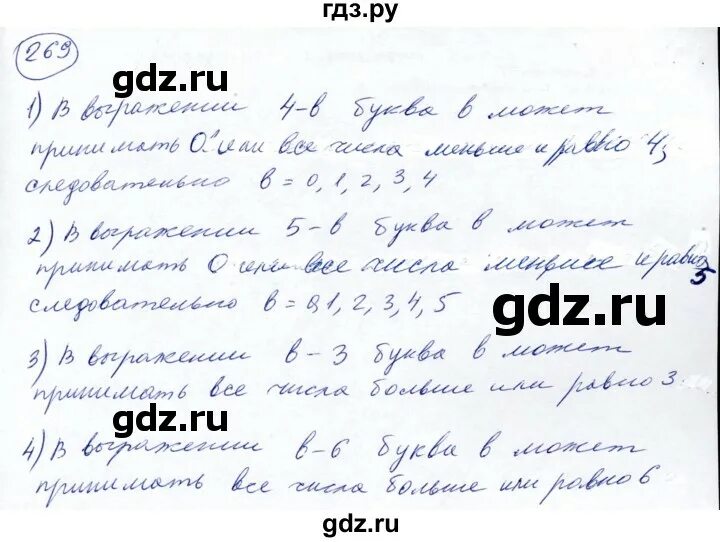 гдз.ру
269
gdz.ru
1) В выражении 4-в буква в может
принимать 0 или все числа меньше и равно 4;
следовательно в = 0, 1, 2, 3, 4
2) В выражении 5-в буква в может
принимать 0 или все числа меньше и равно 5
следовательно в = 0, 1, 2, 3, 4, 5
gdz.ru
3) В выражении в-3 буква в может
принимать все числа больше или равно 3
gdz.ru
4) В выражении в-6 буква в может
принимать все числа больше или равно 6
gdz.ru